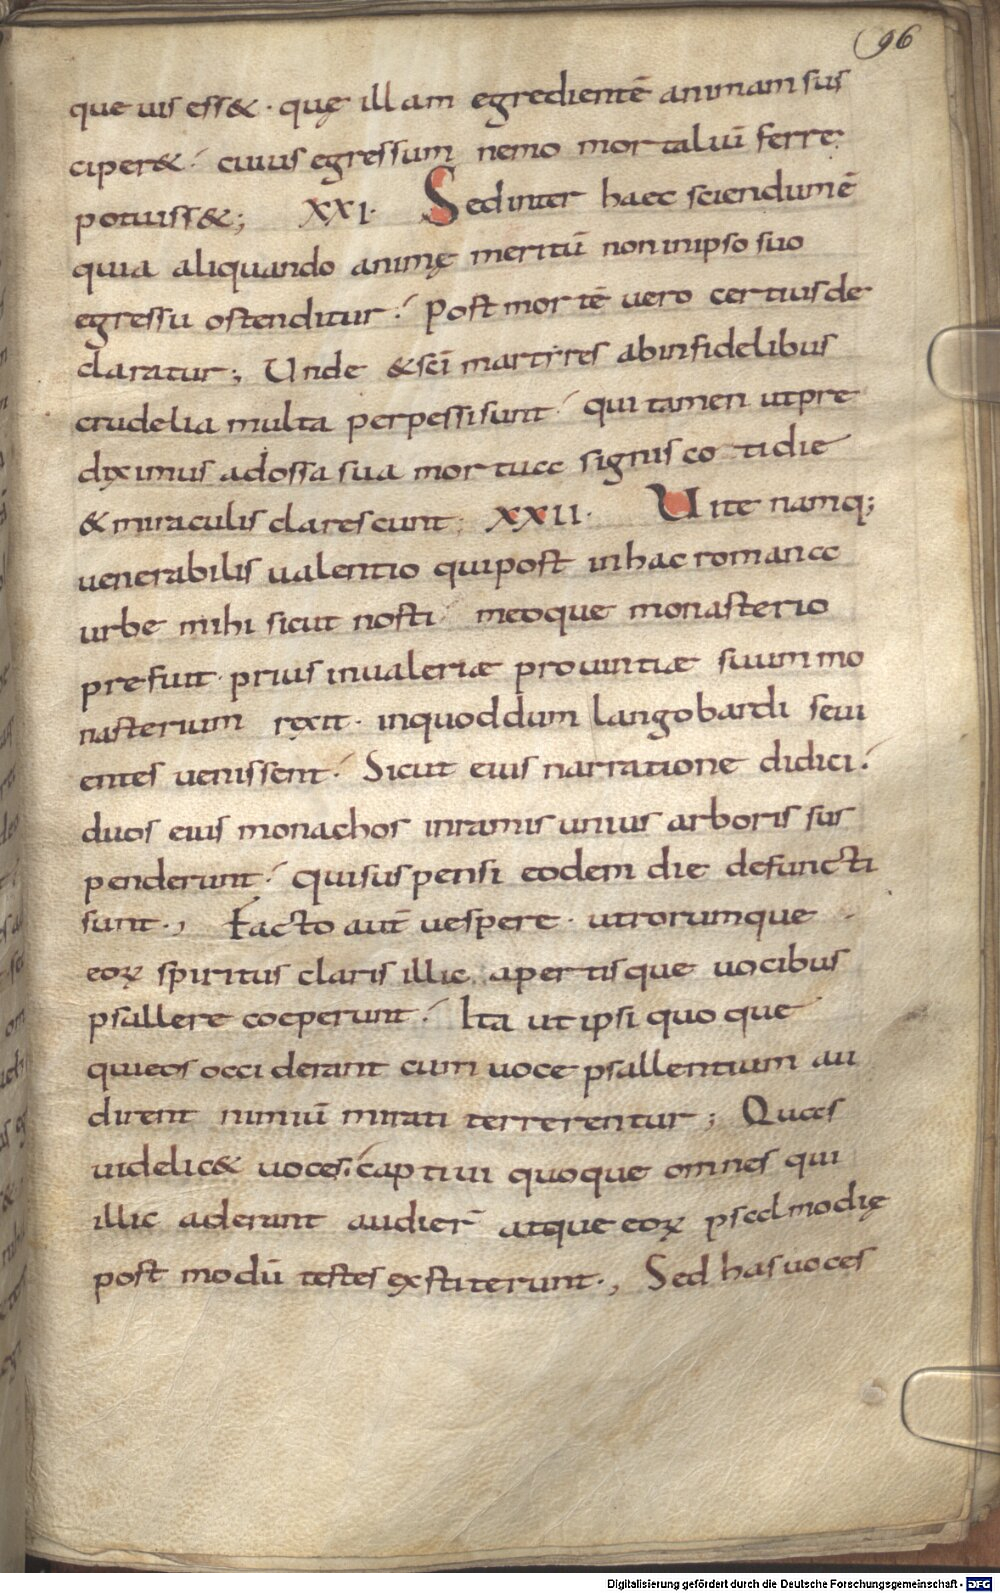 96
que uis ess&. quę illam egredientē animam sus
ciper&. cuius egressum nemo mortaliū ferre
potuiss&; XXI. Sed inter haec sciendum ē
quia aliquando animę meritū non in ipso suo
egressu ostenditur. Post mortē uero certius de
claratur; Unde & sci martyres ab infidelibus
crudelia multa perpessi sunt. qui tamen ut pre
diximus ad ossa sua mortua signis cotidie
& miraculis clarescunt; XXII. Uite namq;
uenerabilis ualentio qui post in hac romana
urbe mihi sicut nosti meoque monasterio
prefuit. prius in ualeriæ prouintiæ suum mo
nasterium rexit. in quo ddum langobardi seui
entes uenissent. Sicut eius narratione didici.
duos eius monachos in ramis unius arboris sus
penderunt. qui suspensi eodem die defuncti
sunt., Facto autē uespere. utrorumque
eoꝝ spiritus claris illic. apertisque uocibus
psallere coeperunt. Ita ut ipsi quoque
qui eos occiderant cum uoce psallentium au
dirent nimiū mirati terrerentur; Quas
uidelic& uoces. captiui quoque omnes qui
illic aderant audier̄ atque eoꝝ psalmodię
post modū testes exstiterunt., Sed has uoces
Digitalisierung gefördert durch die Deutsche Forschungsgemeinschaft - DFG